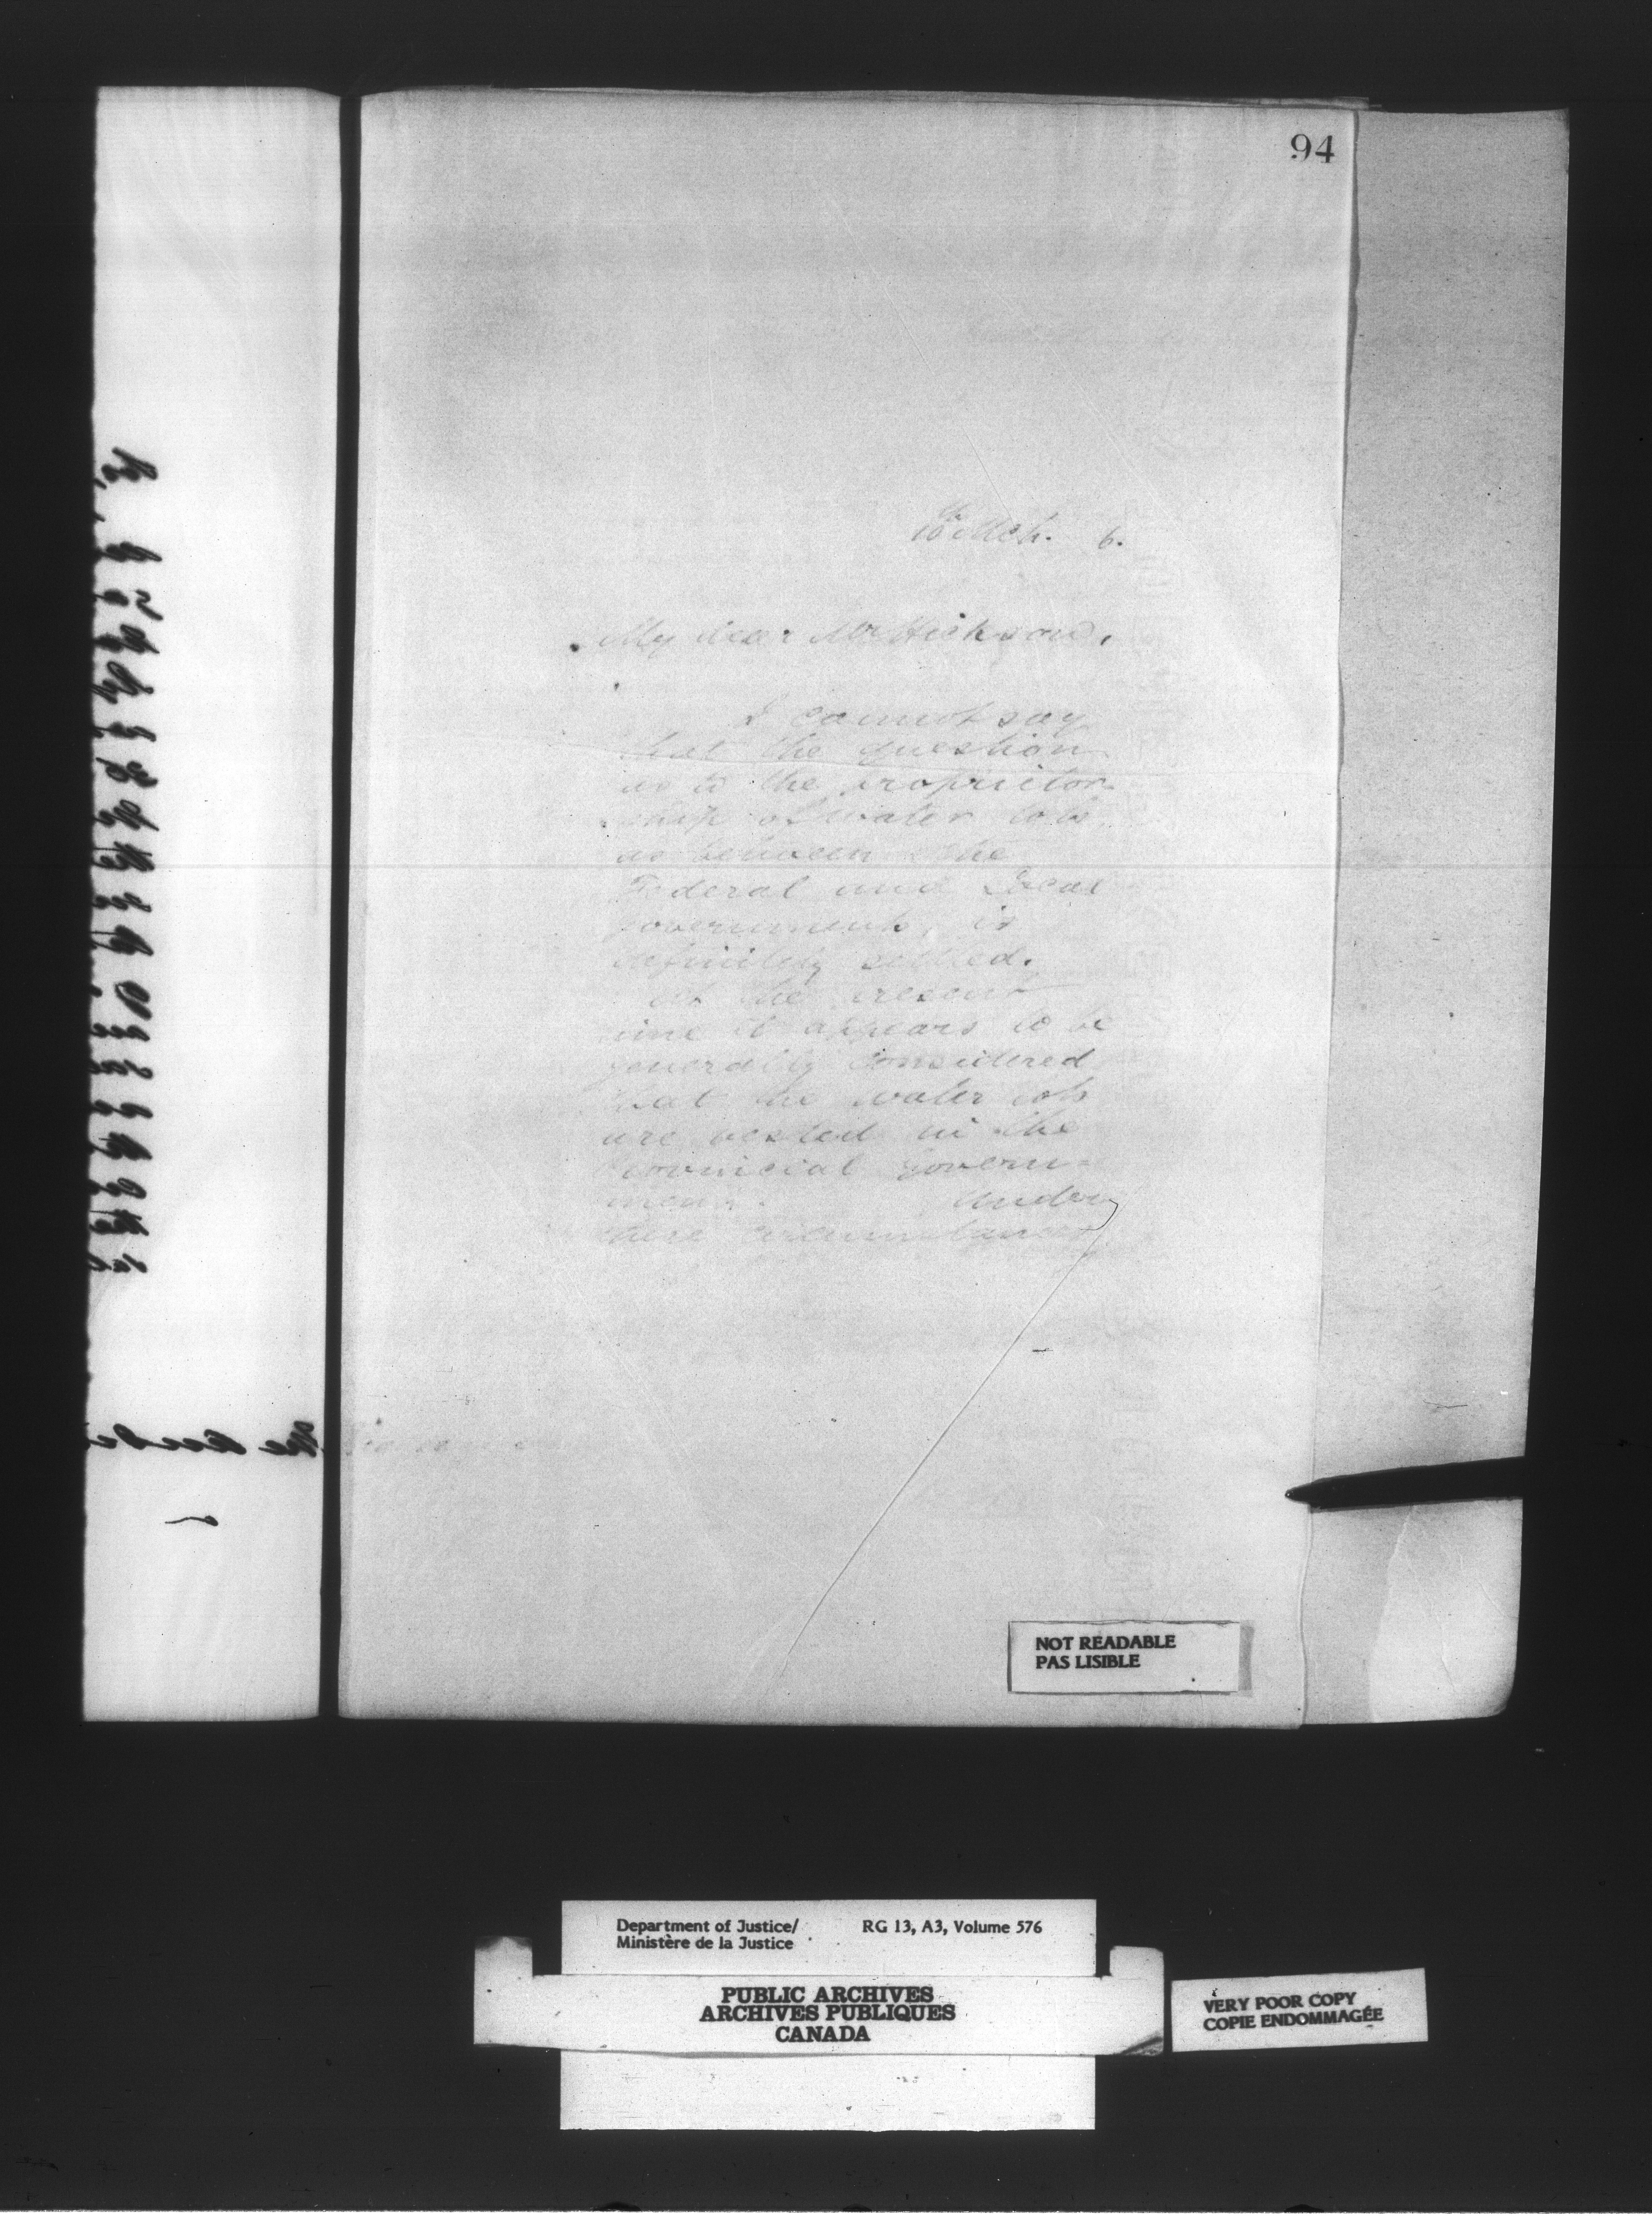 94
10th Mch. 6.
My dear Mr Hickson,
I cannot say
that the question
as to the proprietor-
ship of water lots
as between the
Federal and Local
Governments, is
definitely settled.
At the present
time it appears to be
generally considered
that the water lots
are vested in the
Provincial Govern-
ment. Under
these circumstances
NOT READABLE
PAS LISIBLE
Department of Justice/ RG 13, A3, Volume 576
Ministère de la Justice
PUBLIC ARCHIVES
ARCHIVES PUBLIQUES
CANADA
VERY POOR COPY
COPIE ENDOMMAGÉE